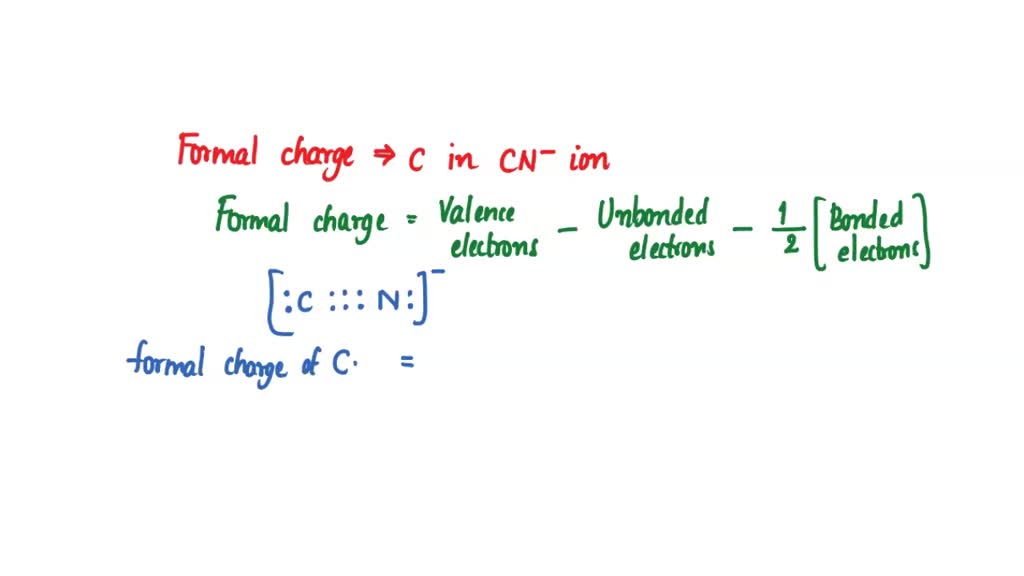 Formal charge ⇒ C in CN⁻ ion
Formal charge = Valence electrons − Unbonded electrons − 1/2 [Bonded electrons]
[:C ::: N:]⁻
formal charge of C. =